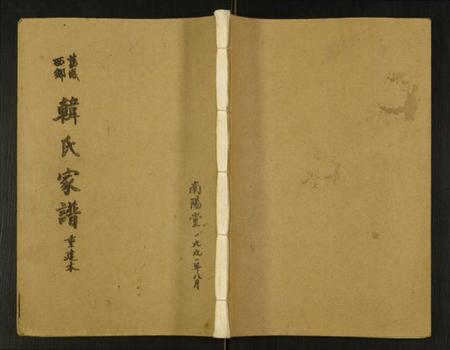 旧城
西乡
韓氏家譜
重建本
南陽堂一九九一年八月